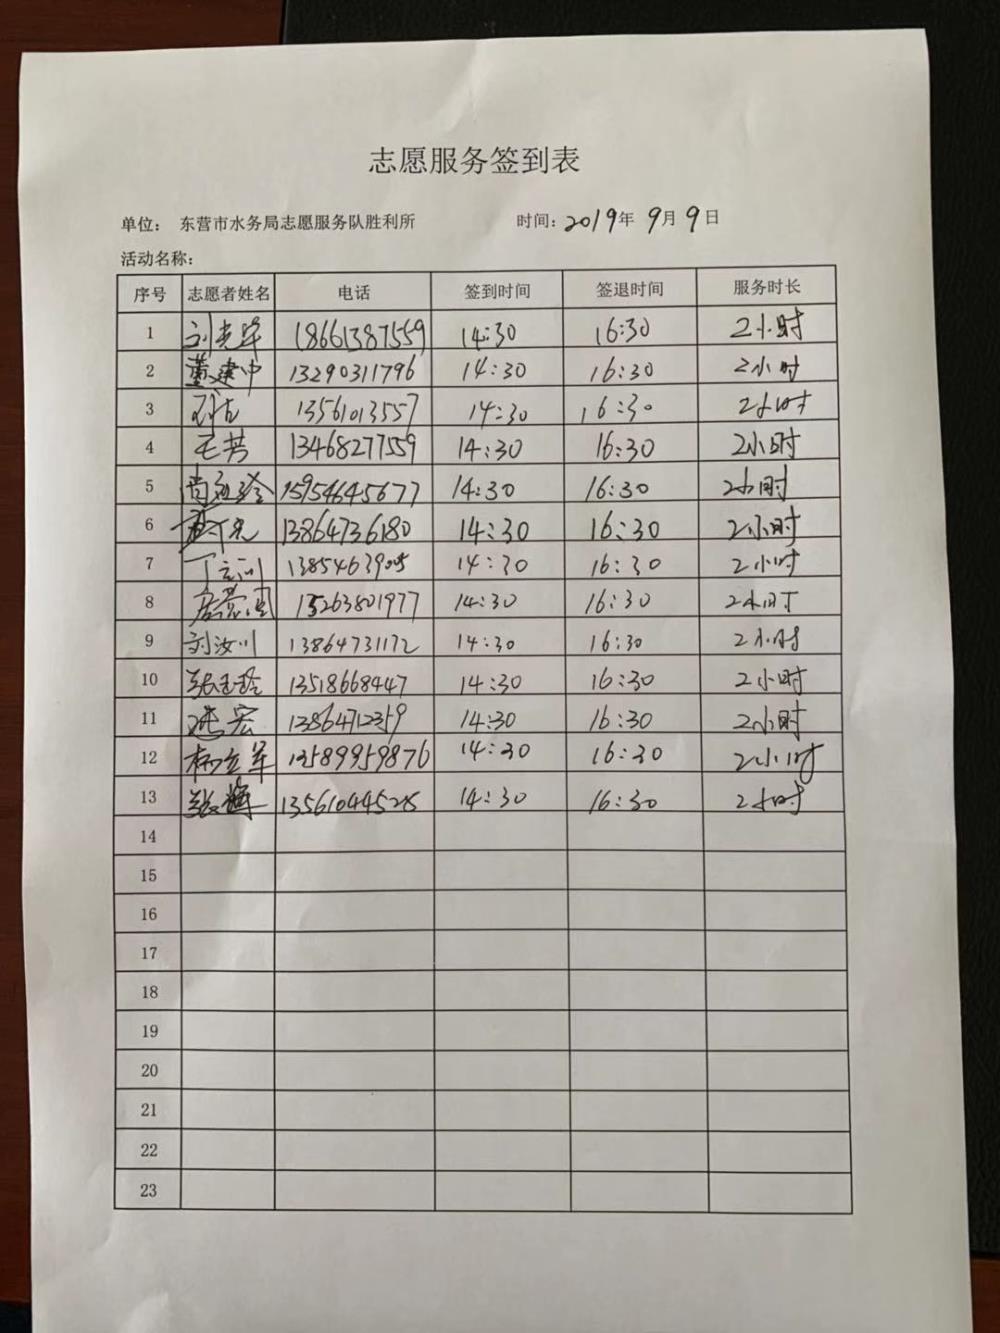 志愿服务签到表
单位： 东营市水务局志愿服务队胜利所 时间：2019年 9月 9日
活动名称：
序号 志愿者姓名 电话 签到时间 签退时间 服务时长
1 18661387559 14:30 16:30 2小时
2 董建中 13290311796 14:30 16:30 2小时
3 13561013557 14:30 16:30 2小时
4 王芳 13468277559 14:30 16:30 2小时
5 15954645677 14:30 16:30 2小时
6 13864736180 14:30 16:30 2小时
7 14:30 16:30 2小时
8 15263801977 14:30 16:30 2小时
9 刘汝川 13864731172 14:30 16:30 2小时
10 张玉玲 13518668447 14:30 16:30 2小时
11 14:30 16:30 2小时
12 13589959876 14:30 16:30 2小时
13 14:30 16:30 2小时
14
15
16
17
18
19
20
21
22
23